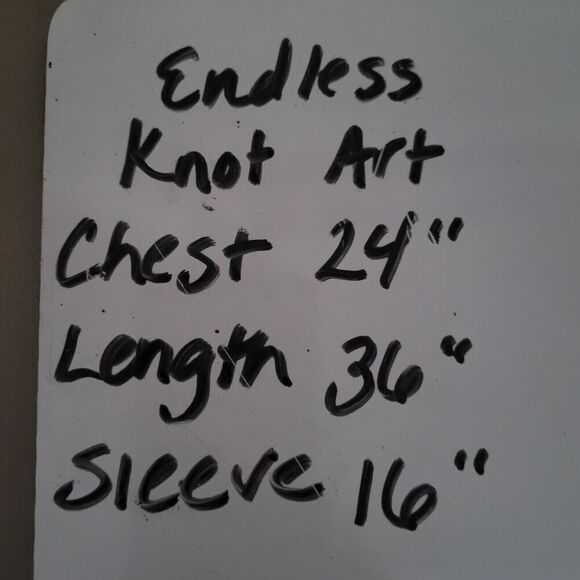 Endless
Knot Art
Chest 24"
Length 36"
Sleeve 16"